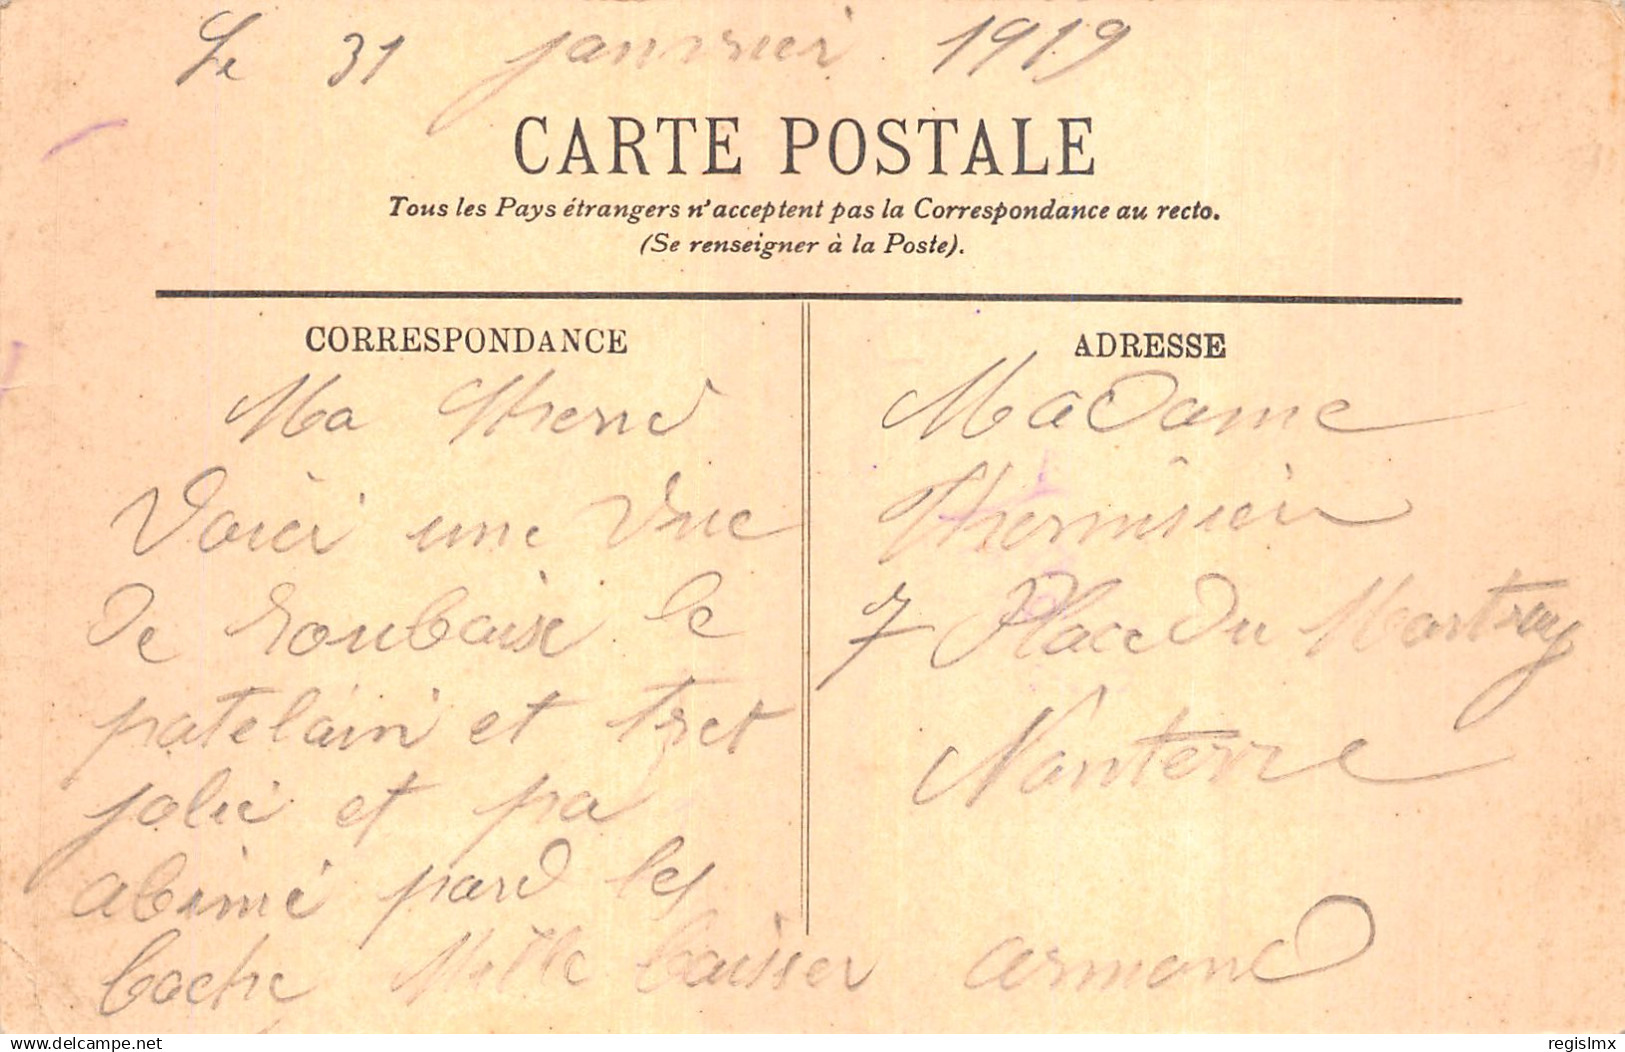 Le 31 janvier 1919
CARTE POSTALE
Tous les Pays étrangers n'acceptent pas la Correspondance au recto.
(Se renseigner à la Poste).
CORRESPONDANCE
Ma
Voici une Vue
de Roubaise le
patelain et tret
jolie et pa
abimé pard les
boche Mille baisser Armand
ADRESSE
Madame
7 Place Du Martray
Nanterre
www.delcampe.net
regislmx